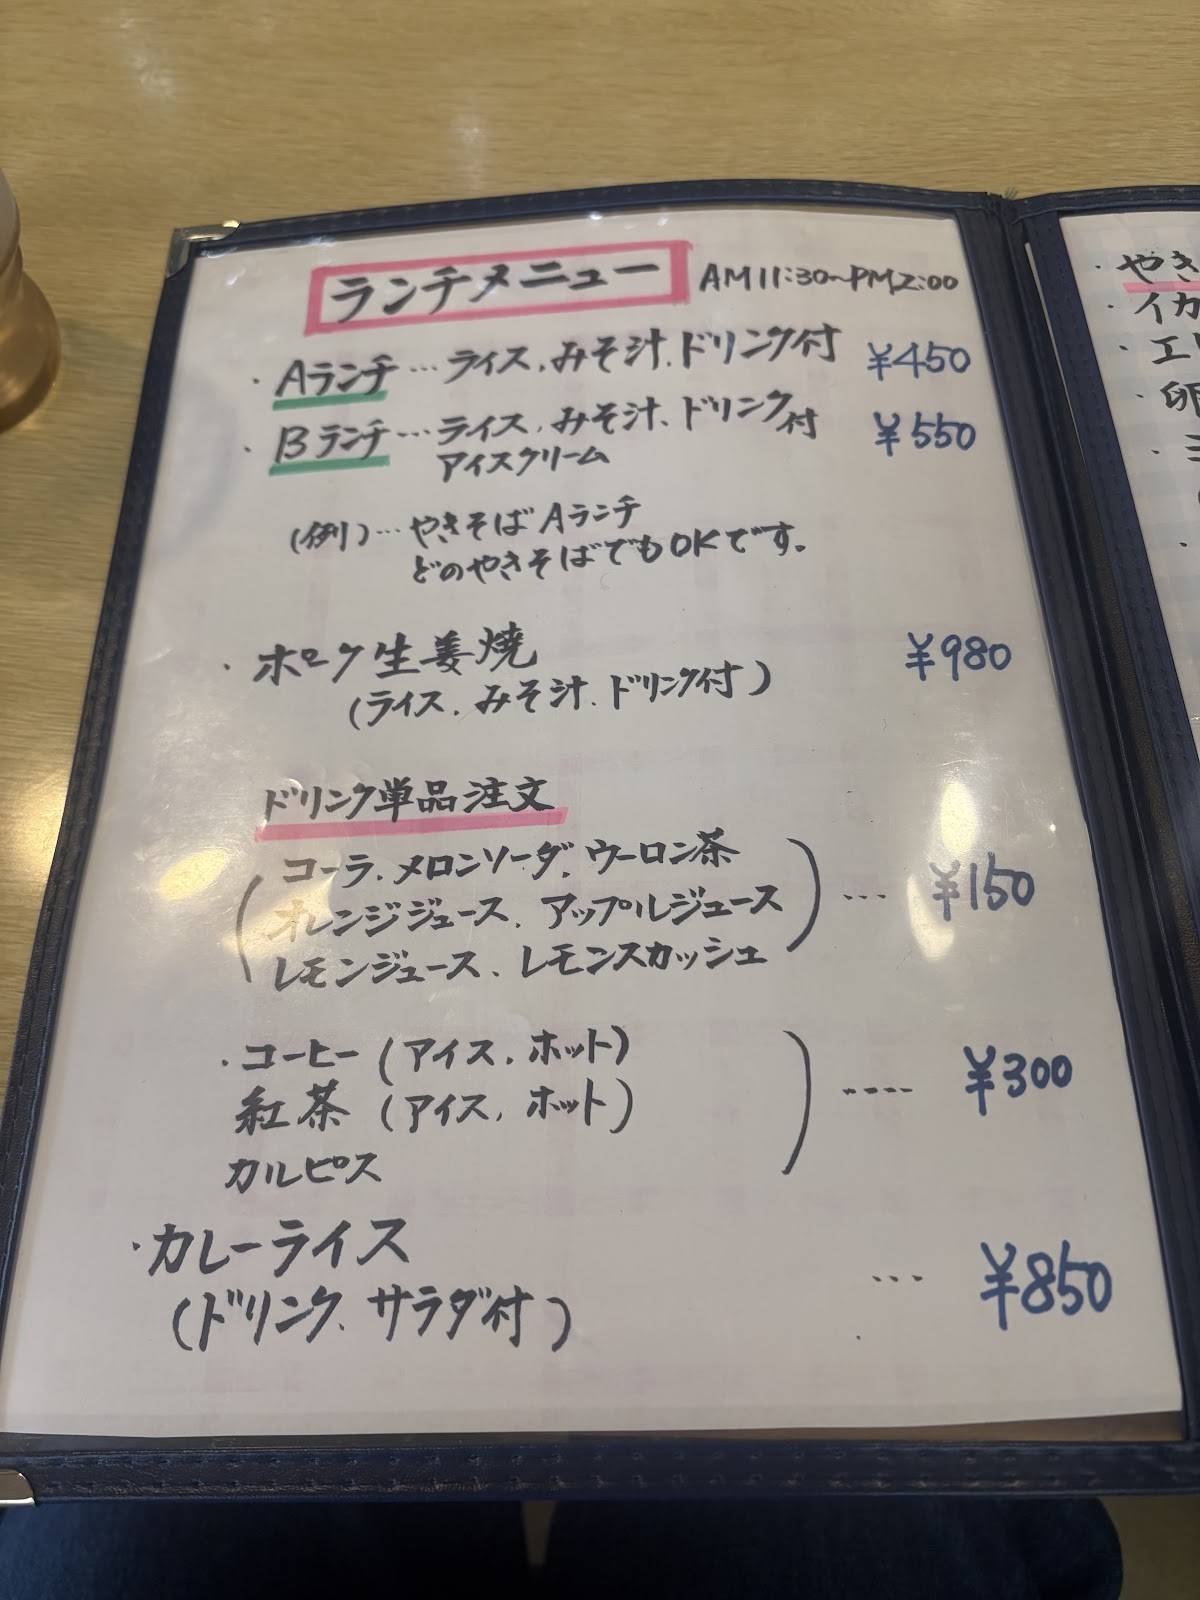 ランチメニュー AM11:30~PM2:00
・Aランチ…ライス、みそ汁、ドリンク付 ¥450
・Bランチ…ライス、みそ汁、ドリンク付 ¥550
アイスクリーム
(例)…やきそばAランチ
どのやきそばでもOKです。
・ポーク生姜焼 ¥980
(ライス、みそ汁、ドリンク付)
ドリンク単品注文
コーラ、メロンソーダ、ウーロン茶
オレンジジュース、アップルジュース … ¥150
レモンジュース、レモンスカッシュ
・コーヒー(アイス、ホット)
紅茶(アイス、ホット) ---- ¥300
カルピス
・カレーライス … ¥850
(ドリンク、サラダ付)
・やき
・イカ
・エ
・卵